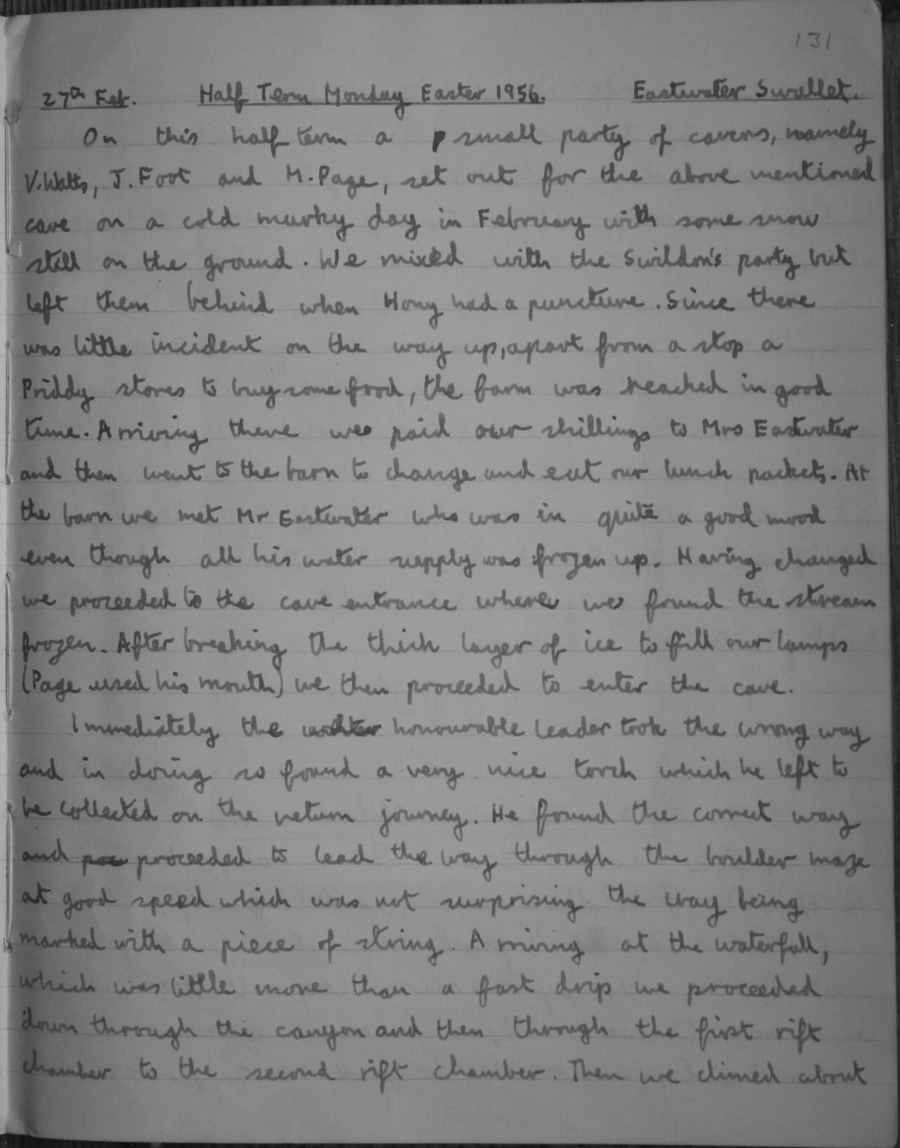 131
27th Feb. Half Term Monday Easter 1956. Eastwater Swallet.
On this half term a small party of cavers, namely
V. Watts, J. Foot and M. Page, set out for the above mentioned
cave on a cold murky day in February with some snow
still on the ground. We mixed with the Swildon's party but
left them behind when Hony had a puncture. Since there
was little incident on the way up, apart from a stop a
Priddy stores to buy some food, the farm was reached in good
time. Arriving there we paid our shillings to Mrs Eastwater
and then went to the barn to change and eat our lunch packets. At
the barn we met Mr Eastwater who was in quite a good mood
even though all his water supply was frozen up. Having changed
we proceeded to the cave entrance where we found the stream
frozen. After breaking the thick layer of ice to fill our lamps
(Page used his mouth) we then proceeded to enter the cave.
Immediately the honourable leader took the wrong way
and in doing so found a very nice torch which he left to
be collected on the return journey. He found the correct way
and proceeded to lead the way through the boulder maze
at good speed which was not surprising the way being
marked with a piece of string. Arriving at the waterfall,
which was little more than a fast drip we proceeded
down through the canyon and then through the first rift
chamber to the second rift chamber. Then we climed about